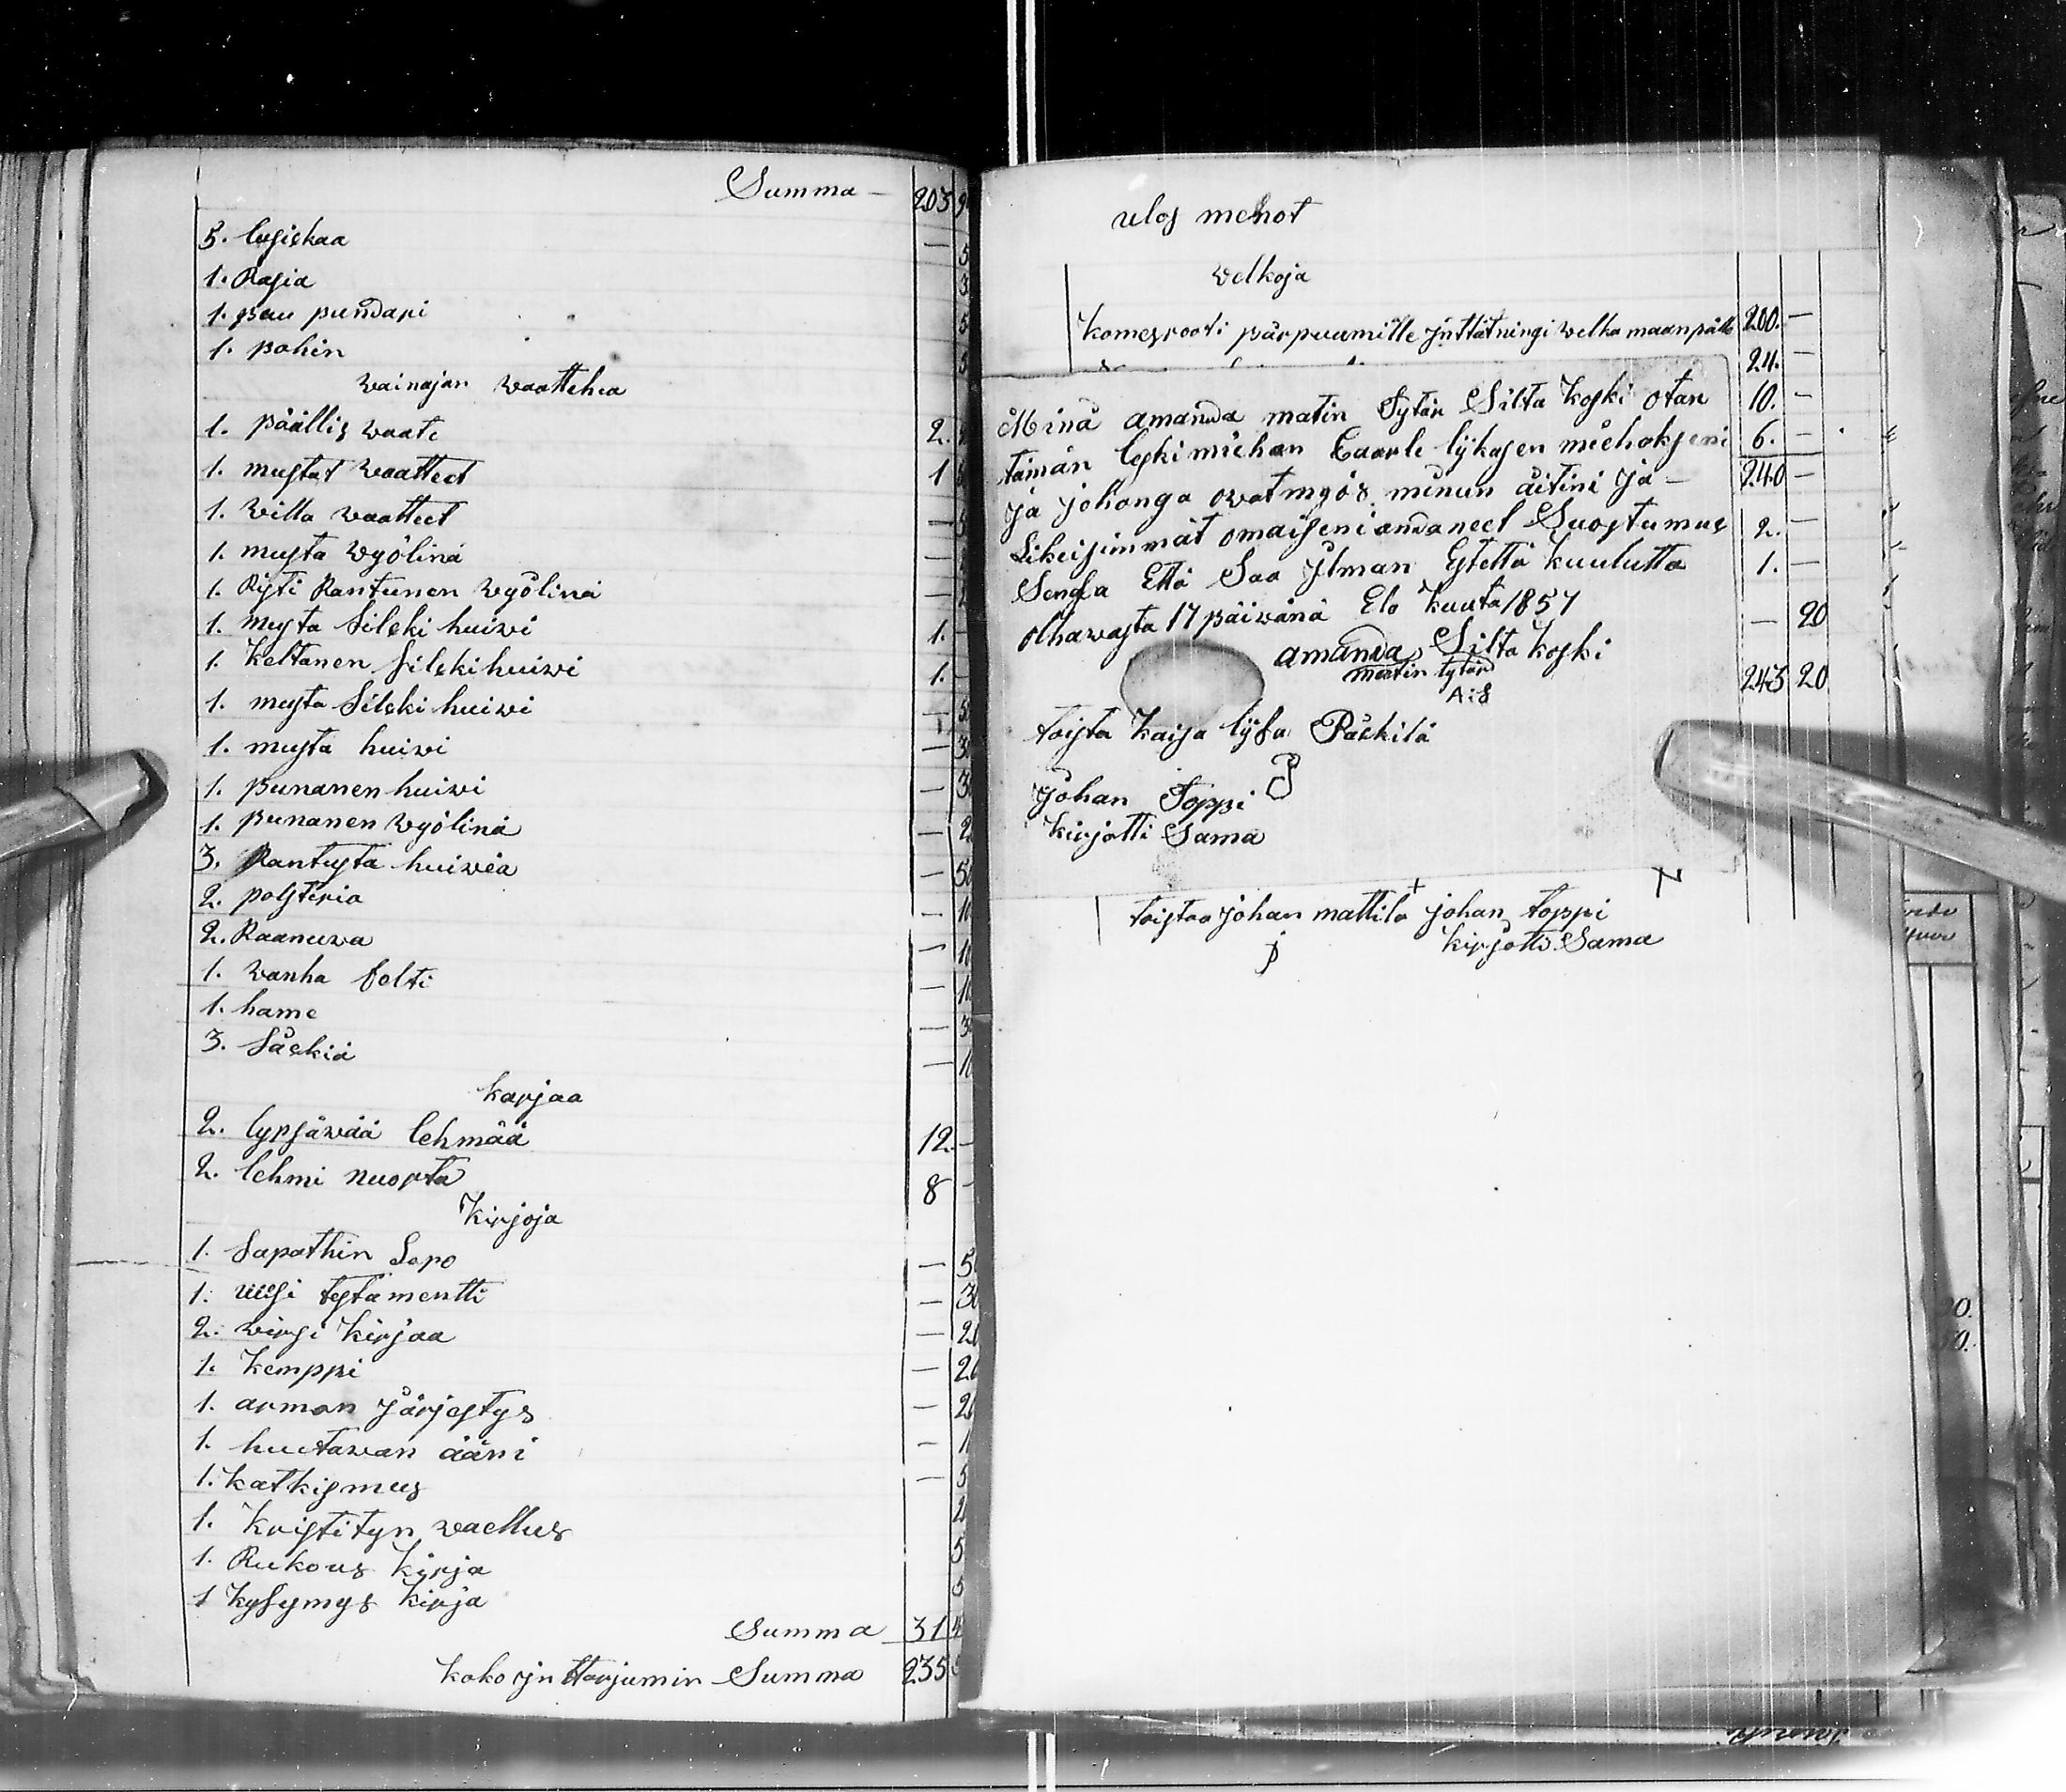 Summa - 203
5. lusickaa -
1. Rasia
1. puu pundari
1. pohin
wainajan waattehia
1. päällis waate 2.
1. mustat waatteet 1
1. willa waatteet -
1. musta wyölinä -
1. Risti Rantunen wyölinä -
1. musta Silcki huiwi 1. -
1. Keltanen Silckihuiwi 1. -
1. musta Silcki huiwi -
1. musta huiwi - 3
1. punanen huiwi - 3
1. punanen wyölinä - 2
3. Rantusta huiwia - 50
2. polsteria - 10
2. Raanuwa - 10
1. wanha felti - 10
1. hame - 3
3. Säckiä - 10
karjaa
2. lypsäwää lehmää 12. -
2. lehmi nuorta 8 -
Kirjoja
1. Sapathin Lepo - 50
1. uusi testamentti - 30
2. wirsi kirjaa - 20
1. Kemppi - 20
1. armon järjestys - 20
1. huutawan ääni - 1
1. katkismus - 5
1. Kristityn waellus
1. Rukous kirja 5
1 kysymys kirja 5
Summa 31
koko jnttarjumin Summa 235
ulos menot
welkoja
Komesrooti pärpuumille jnttätningi welka maanpäll 200. -
24. -
10. -
6. -
240 -
2. -
1. -
- 20
243 20
Minä amanda matin Tytär Silta koski otan
tämän leskimiehen Caarle lijkasen miehekseni
ja johonga owat myös minun äitini ja -
Likeisimmät omaiseni andaneet Suostumus
Sensa Että Saa jlman Estettä kuulutta
Olhawasta 17 päiwänä Elo kuuta 1857
amanda Silta koski
matin tytär
A:S
toista Kaisa lijsa Päckilä
Johan Toppi
kirjotti Sama
toistaa johan mattila johan toppi
kirjotti Sama